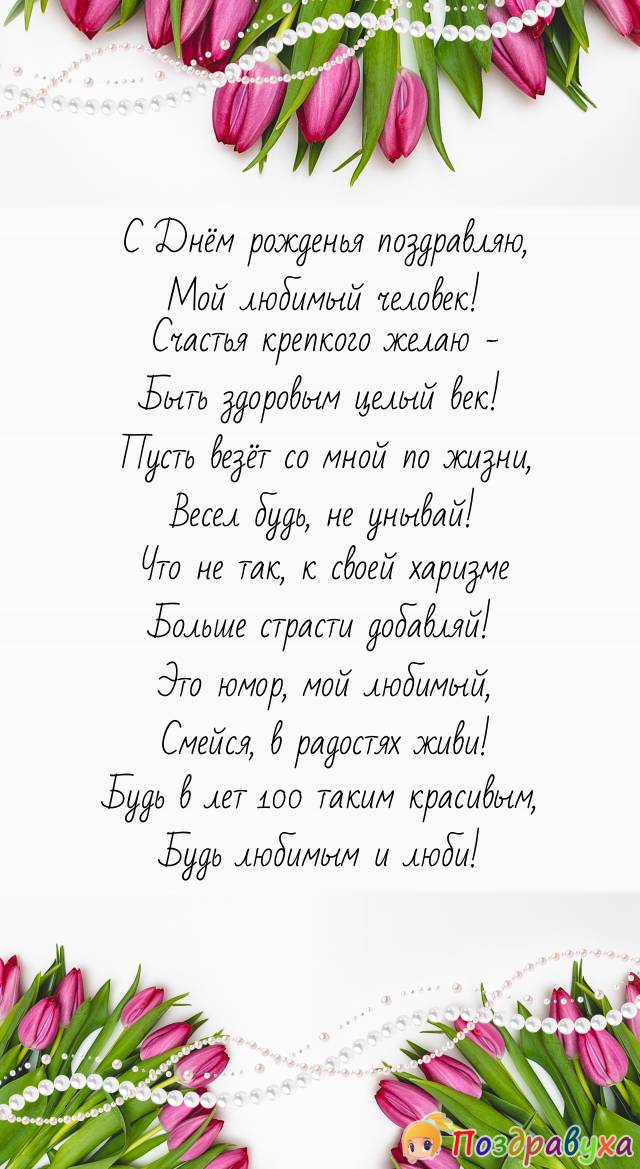 С Днём рожденья поздравляю,
Мой любимый человек!
Счастья крепкого желаю -
Быть здоровым целый век!
Пусть везёт со мной по жизни,
Весел будь, не унывай!
Что не так, к своей харизме
Больше страсти добавляй!
Это юмор, мой любимый,
Смейся, в радостях живи!
Будь в лет 100 таким красивым,
Будь любимым и люби!
Поздравуха